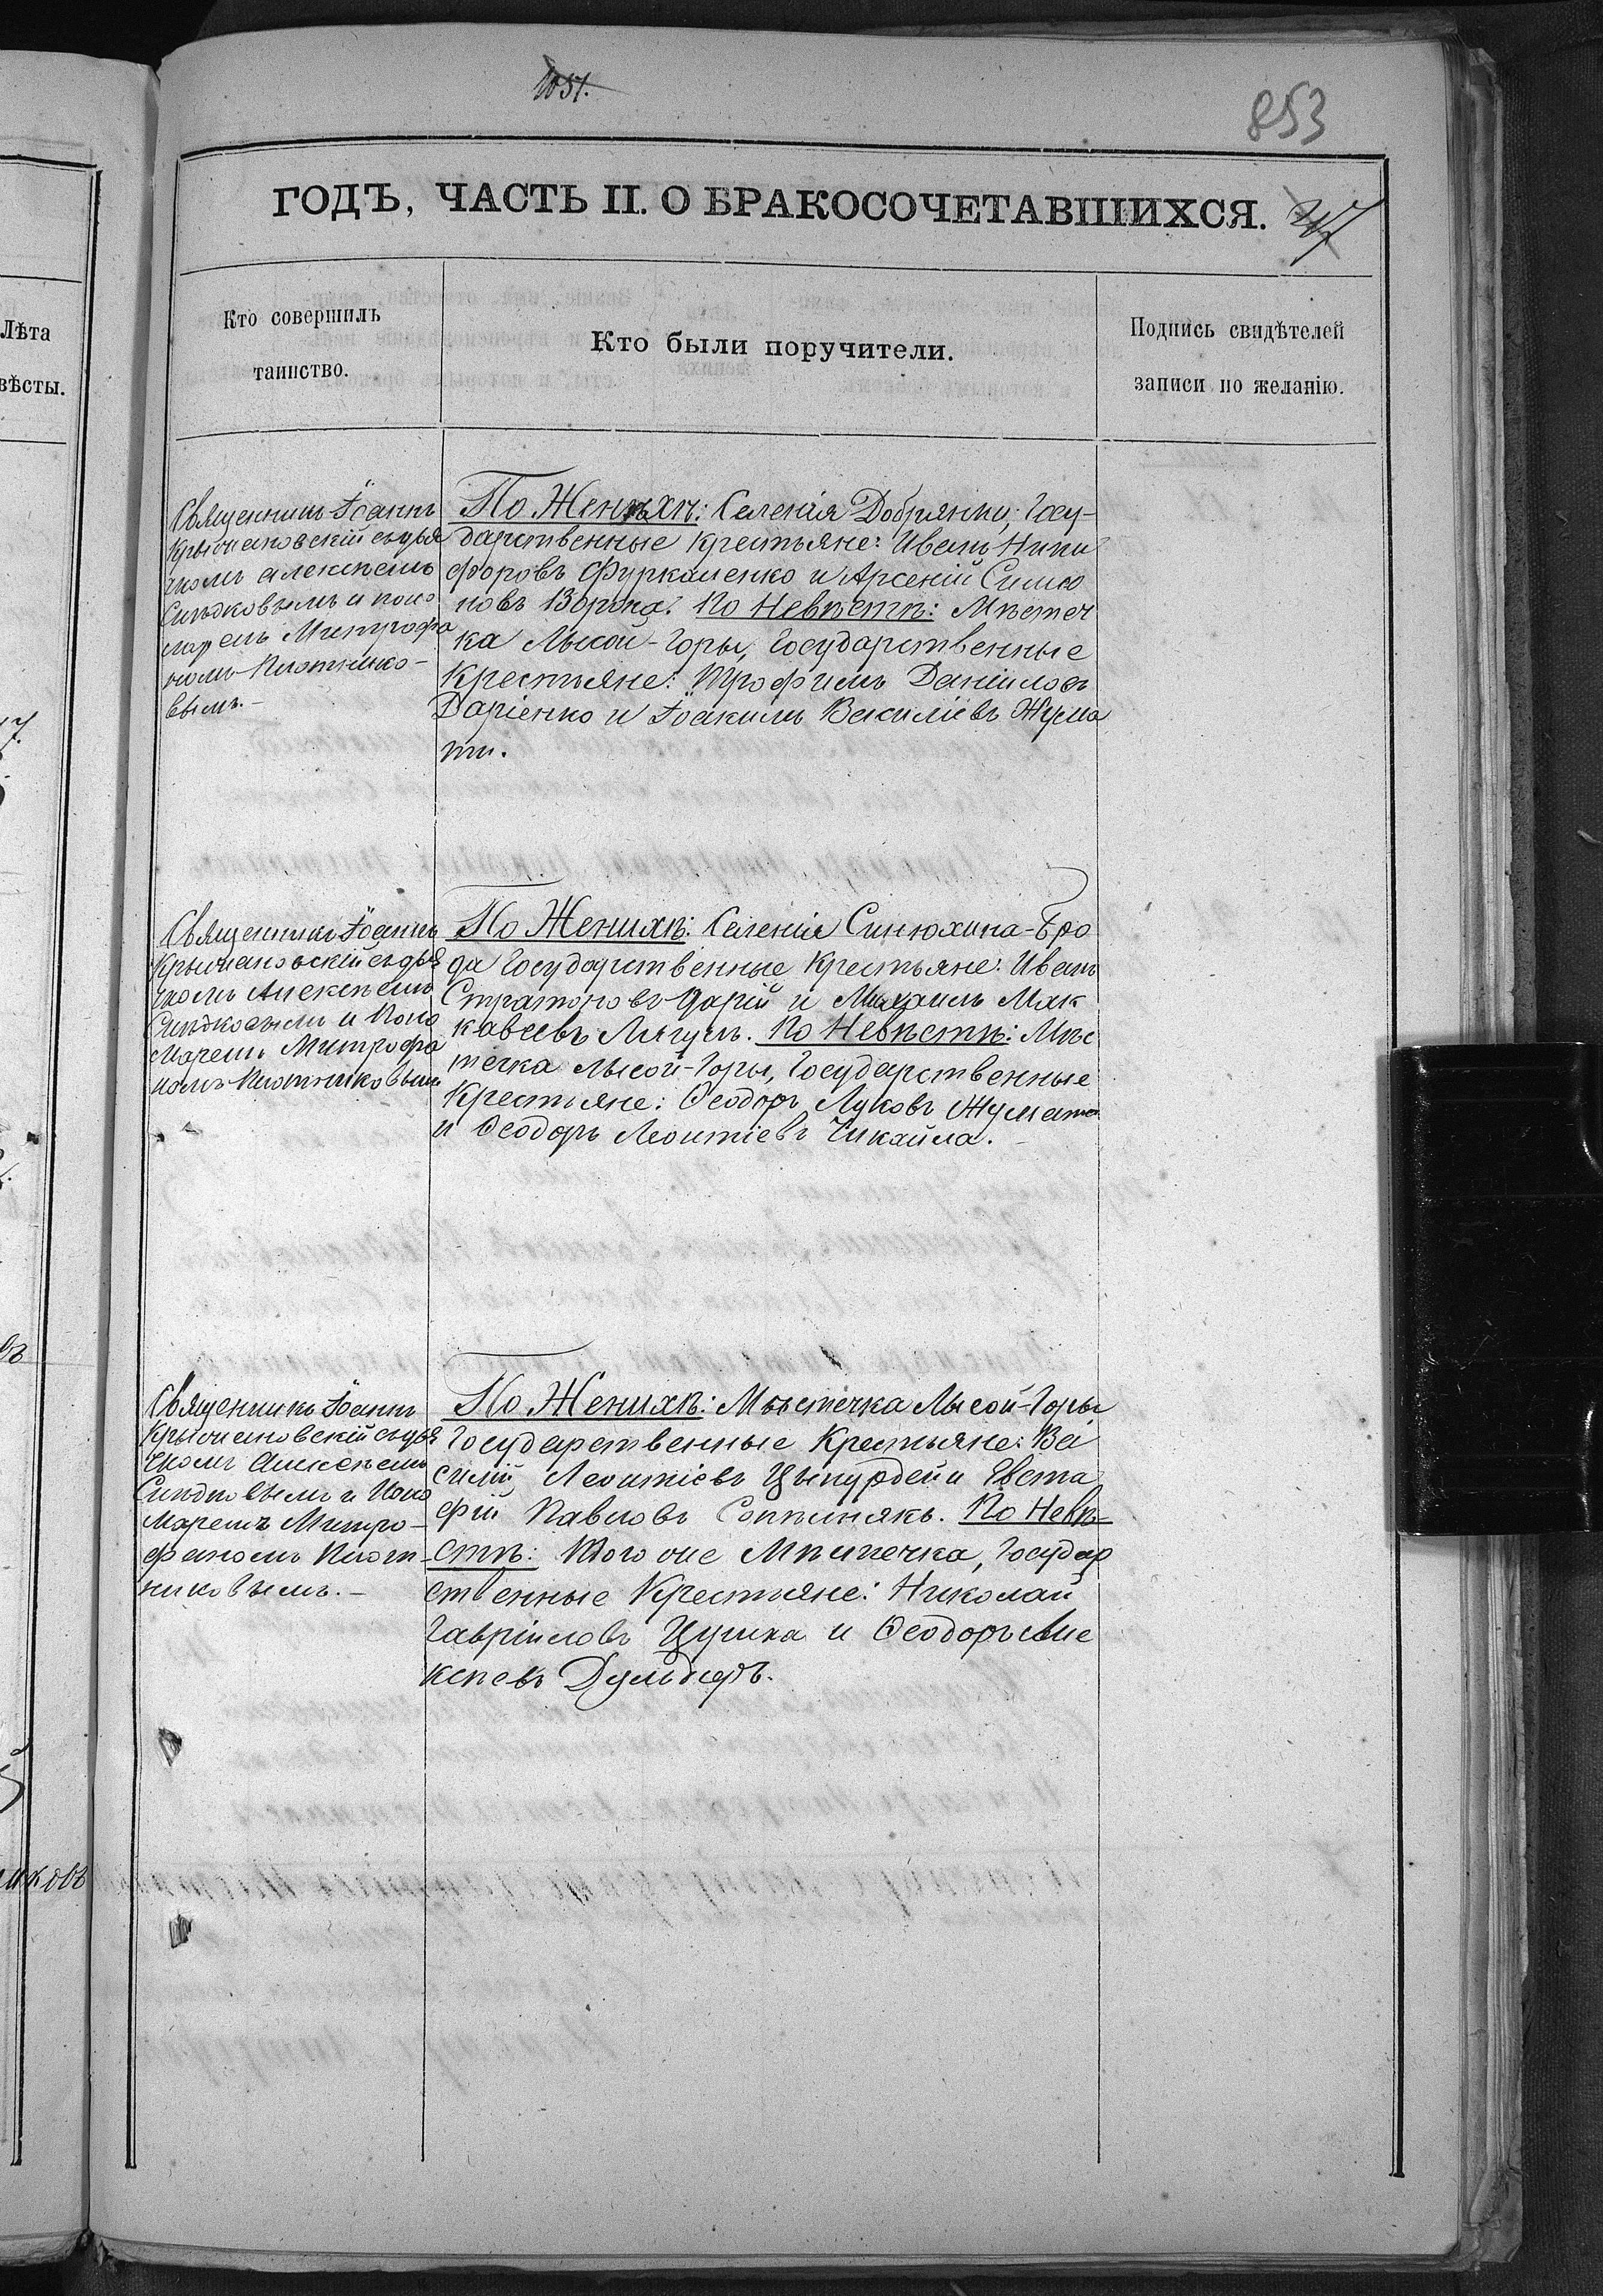 1051.
853
ГОДЪ, ЧАСТЬ II. О БРАКОСОЧЕТАВШИХСЯ.
Лѣта
вѣсты.
Кто совершилъ
таинство.
Кто были поручители.
Подпись свидѣтелей
записи по желанію.
Священникъ Іоаннъ
Крыжановскій съ дья
чкомъ Алексѣемъ
Синдковымъ и поно
маремъ Митрофа
номъ Плотнико-
вымъ.-
По Женихѣ: Селенія Добрянки, Госу-
дарственные крестьяне: Иванъ Ники
форовъ Фуркаленко и Арсеній Симео
новъ Ворона. По Невѣстѣ: Мѣстеч
ка Лысой-Горы, Государственные
Крестьяне: Трофимъ Даніиловъ
Даріенко и Іоакимъ Василіевъ Жума
ти.
Священникъ Іоаннъ
Крыжановскій съ дья
чкомъ Алексѣемъ
Синдковымъ и Поно
маремъ Митрофа
номъ Плотниковымъ
По Женихѣ: Селенія Синюхина-Бро
да Государственные Крестьяне: Иванъ
Стратоновъ Царій и Михаилъ Мак
кавеевъ Лягулъ. По Невѣстѣ: Мѣс
течка Лысой-Горы, Государственные
Крестьяне: Ѳеодоръ Луковъ Жумати
и Ѳеодоръ Леонтіевъ Чикайла.
Священникъ Іоаннъ
Крыжановскій съ дья
чкомъ Алексѣемъ
Синдковымъ и Поно
маремъ Митро-
фаномъ Плот-
никовымъ.-
По Женихѣ: Мѣстечка Лысой-Горы
Государственные Крестьяне: Ва
силій Леонтіевъ Цынурдей и Евста
фій Павловъ По Невѣ-
стѣ: Того же Мѣстечка, Государ
ственные Крестьяне: Николай
Гавріиловъ Цушка и Ѳеодоръ Але
ксѣевъ Дульдеръ.